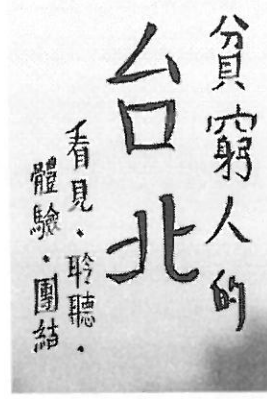 貧窮人的
台北
看見．聆聽．
體驗．團結